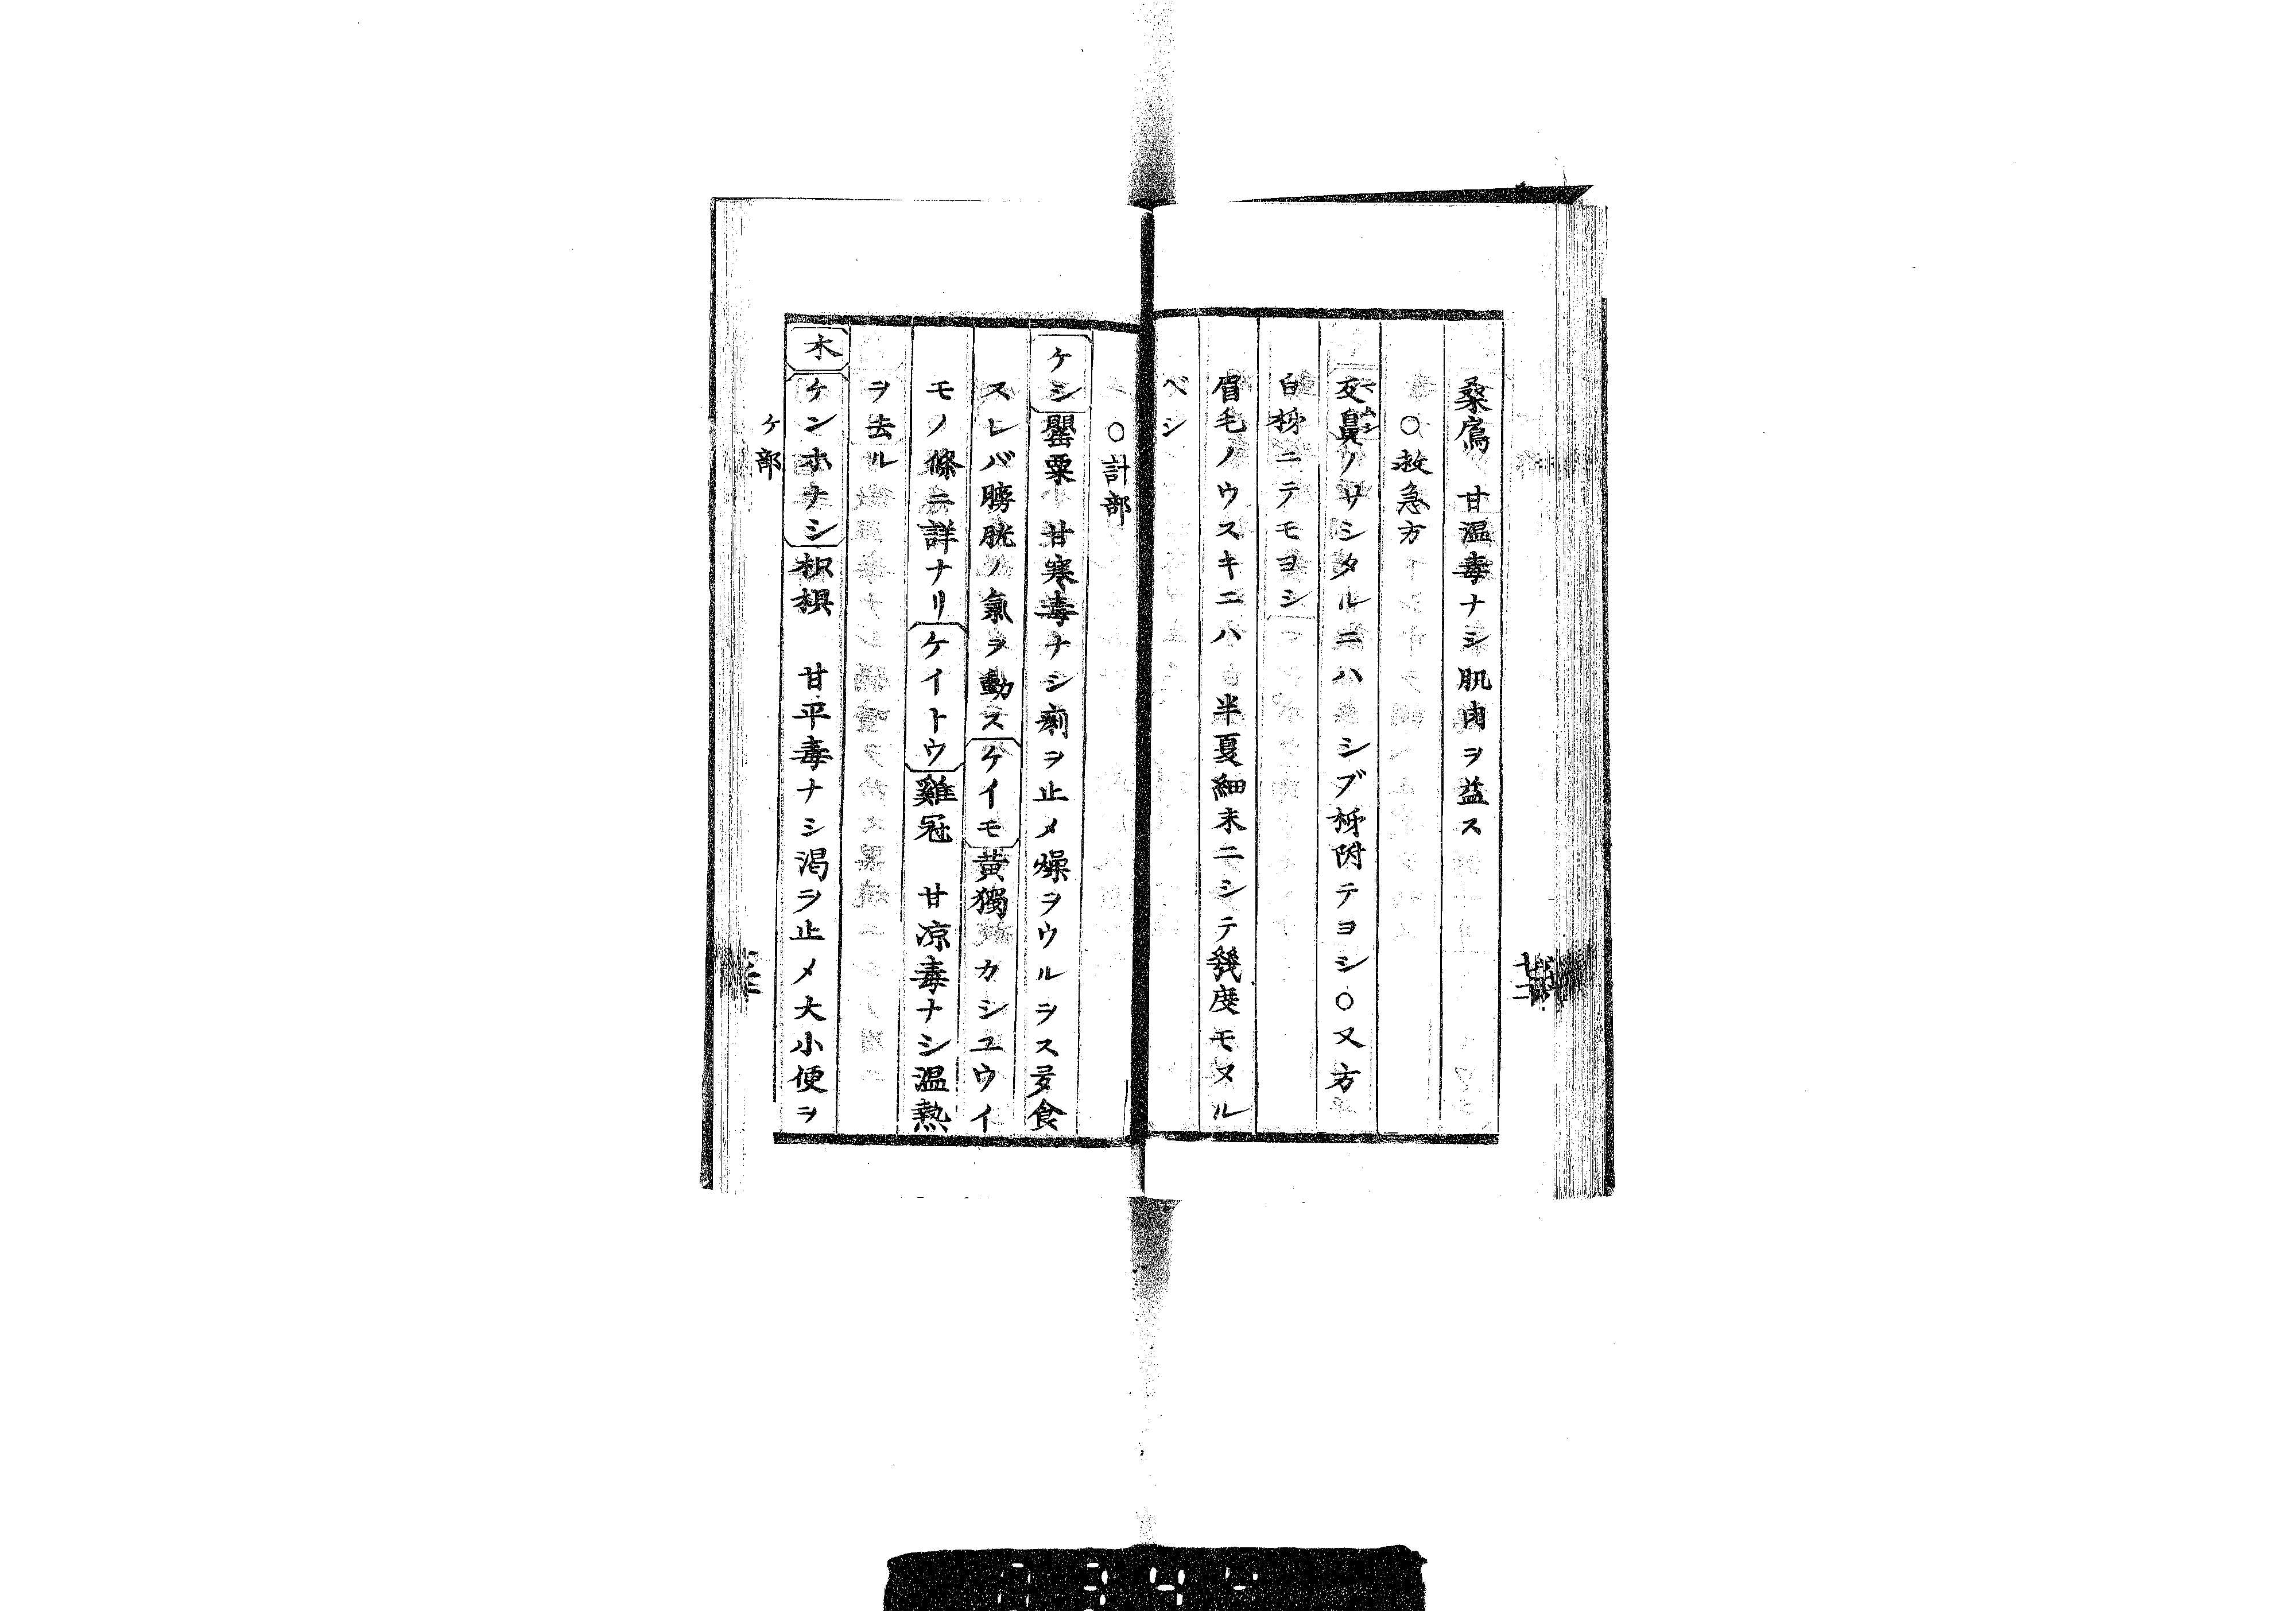 桑鳸　甘温毒ナシ肌肉ヲ益ス
○救急方
蝮ノサシタルニハ　シブ柹附テヨシ○又方
マムシ
白柹ニテモヨシ
眉毛ノウスキニハ　半夏細末ニシテ幾度モヌル
ベシ
○計部
ケシ 罌粟　甘寒毒ナシ痢ヲ止メ燥ヲウルヲス多食
スレバ膀胱ノ氣ヲ動ス ケイモ 黃獨　カシユウイ
モノ條ニ詳ナリ ケイトウ 雞冠　甘凉毒ナシ温熱
ヲ去ル
木 ケンホナシ 枳椇　甘平毒ナシ渇ヲ止メ大小便ヲ
ケ部